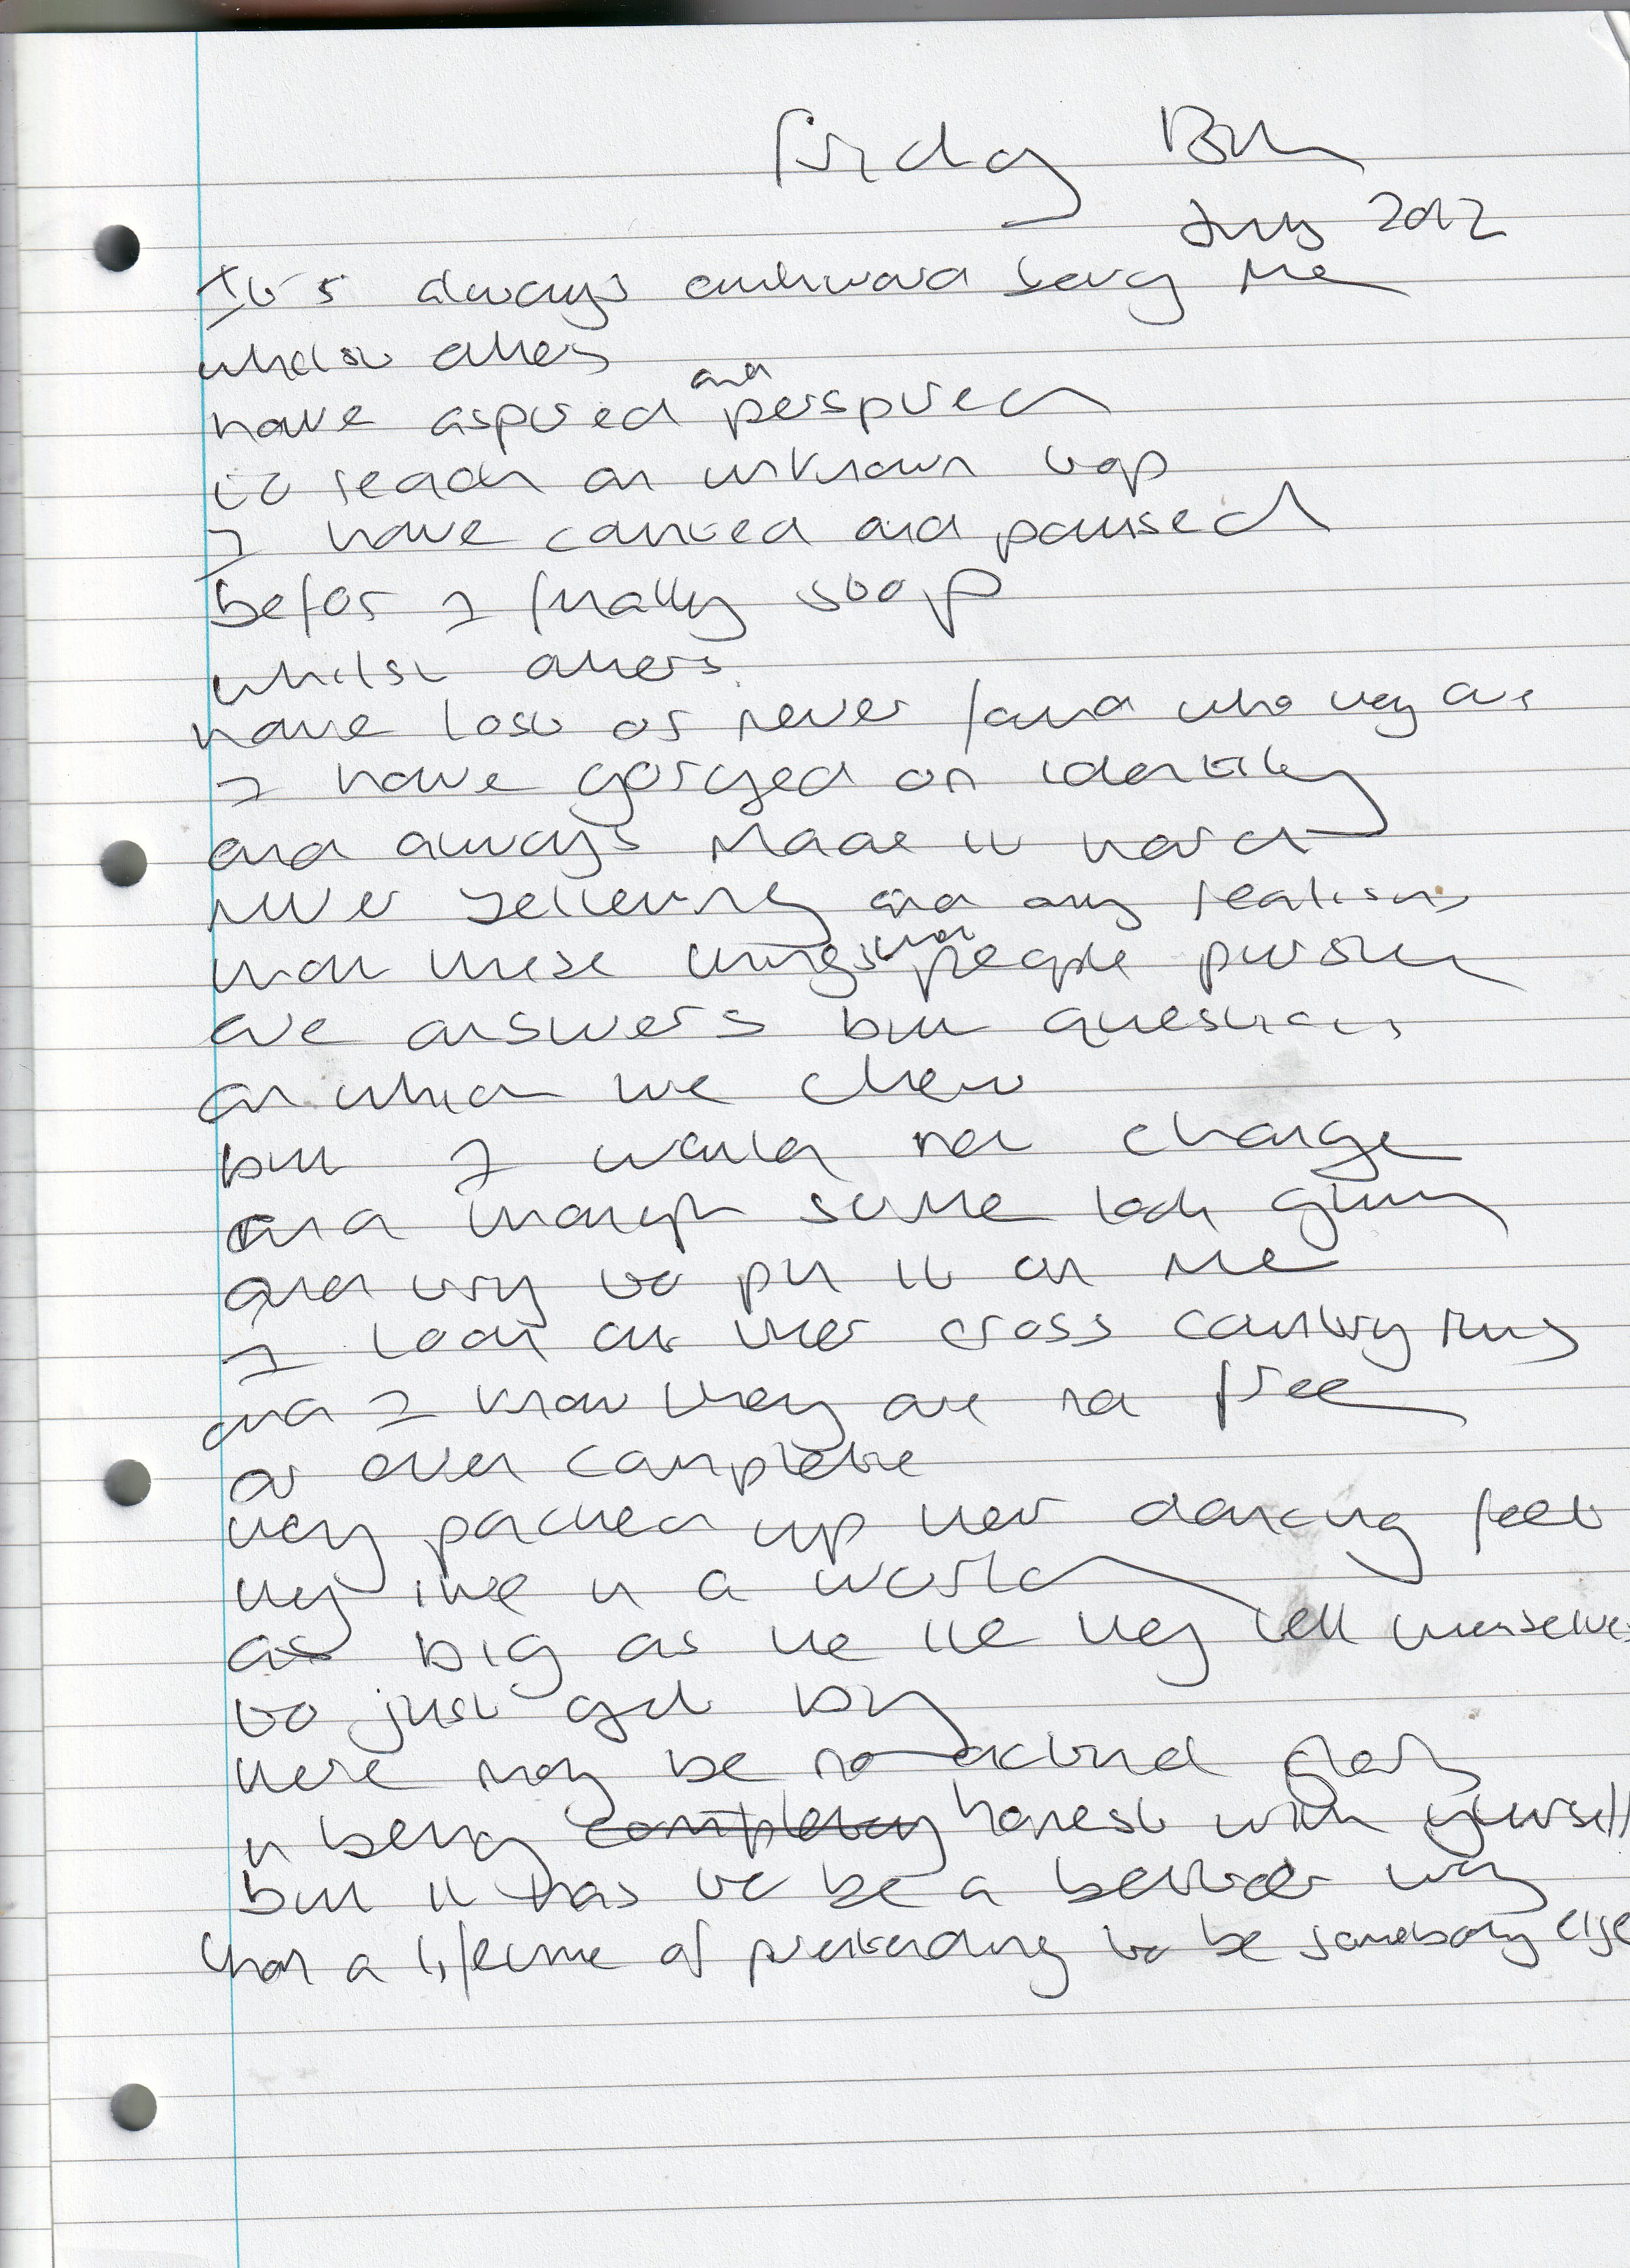 Friday 13th
July 2012
It's always awkward being me
whilst others
have aspired and perspired
to reach an unknown top
I have canted and paused
before I finally stop
whilst others
have lost or never found who they are
I have gorged on identity
and always made it hard
never believing and any
with these things that people pursue
are answers but questions
on which we chew
but I would not change
and though some look glum
and try to pin it on me
I look at their cross country runs
and I know they are not free
or even complete
they packed up their dancing feet
they live in a world
as big as the lie they tell themselves
to just get by
there may be no actual glory
in being completely honest with yourself
but it has to be a better way
than a lifetime of pretending to be somebody else